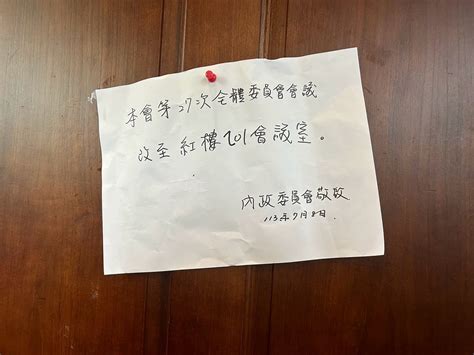 本會第27次全體委員會會議
改至紅樓201會議室。
內政委員會敬啟
113年7月8日.